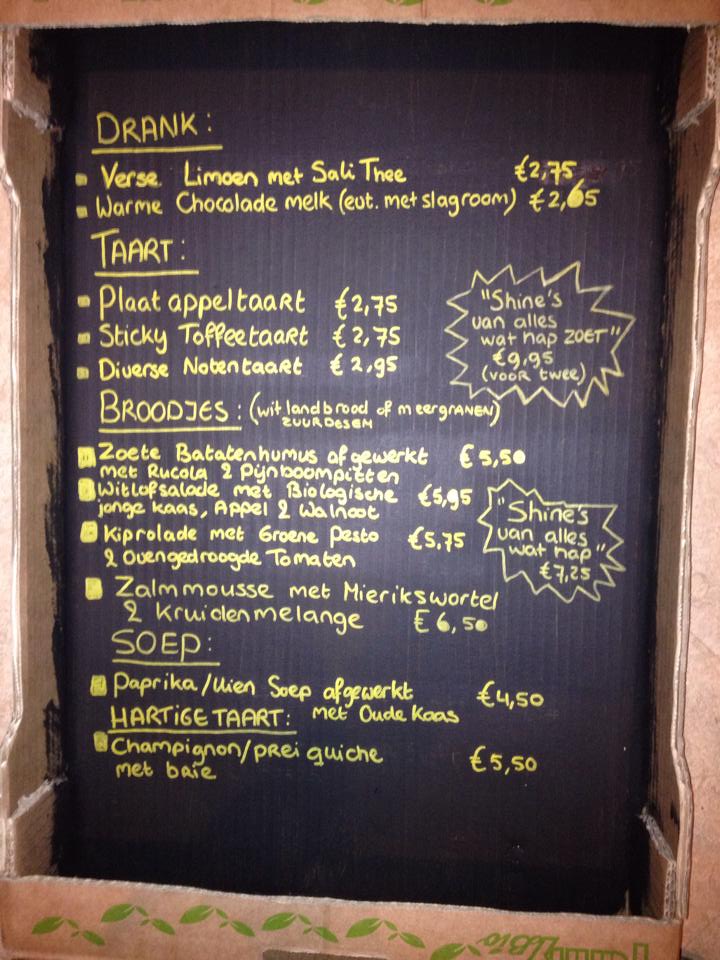 DRANK:
Verse Limoen met Sali Thee €2,75
Warme Chocolade melk (evt. met slagroom) €2,65
TAART:
Plaat appeltaart €2,75
Sticky Toffeetaart €2,75
Diverse Notentaart €2,95
"Shine's
van alles
wat hap ZOET"
€9,95
(voor twee)
BROODJES: (wit landbrood of meergranen)
ZUURDESEM
Zoete Batatenhumus afgewerkt €5,50
met Rucola & Pijnboompitten
Witlofsalade met Biologische €5,95
jonge kaas, Appel & Walnoot
Kiprolade met Groene Pesto €5,75
& Ovengedroogde Tomaten
"Shine's
van alles
wat hap"
€7,25
Zalmmousse met Mierikswortel
& Kruidenmelange €6,50
SOEP:
Paprika/Uien Soep afgewerkt €4,50
met Oude Kaas
HARTIGE TAART:
Champignon/prei quiche €5,50
met brie